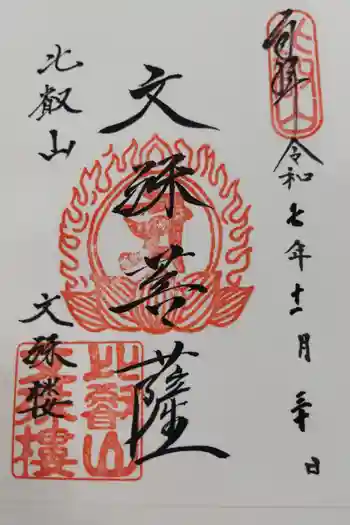 奉拝
令和七年十一月三十日
文殊菩薩
比叡山
文殊楼
比叡山
比叡山
文殊楼